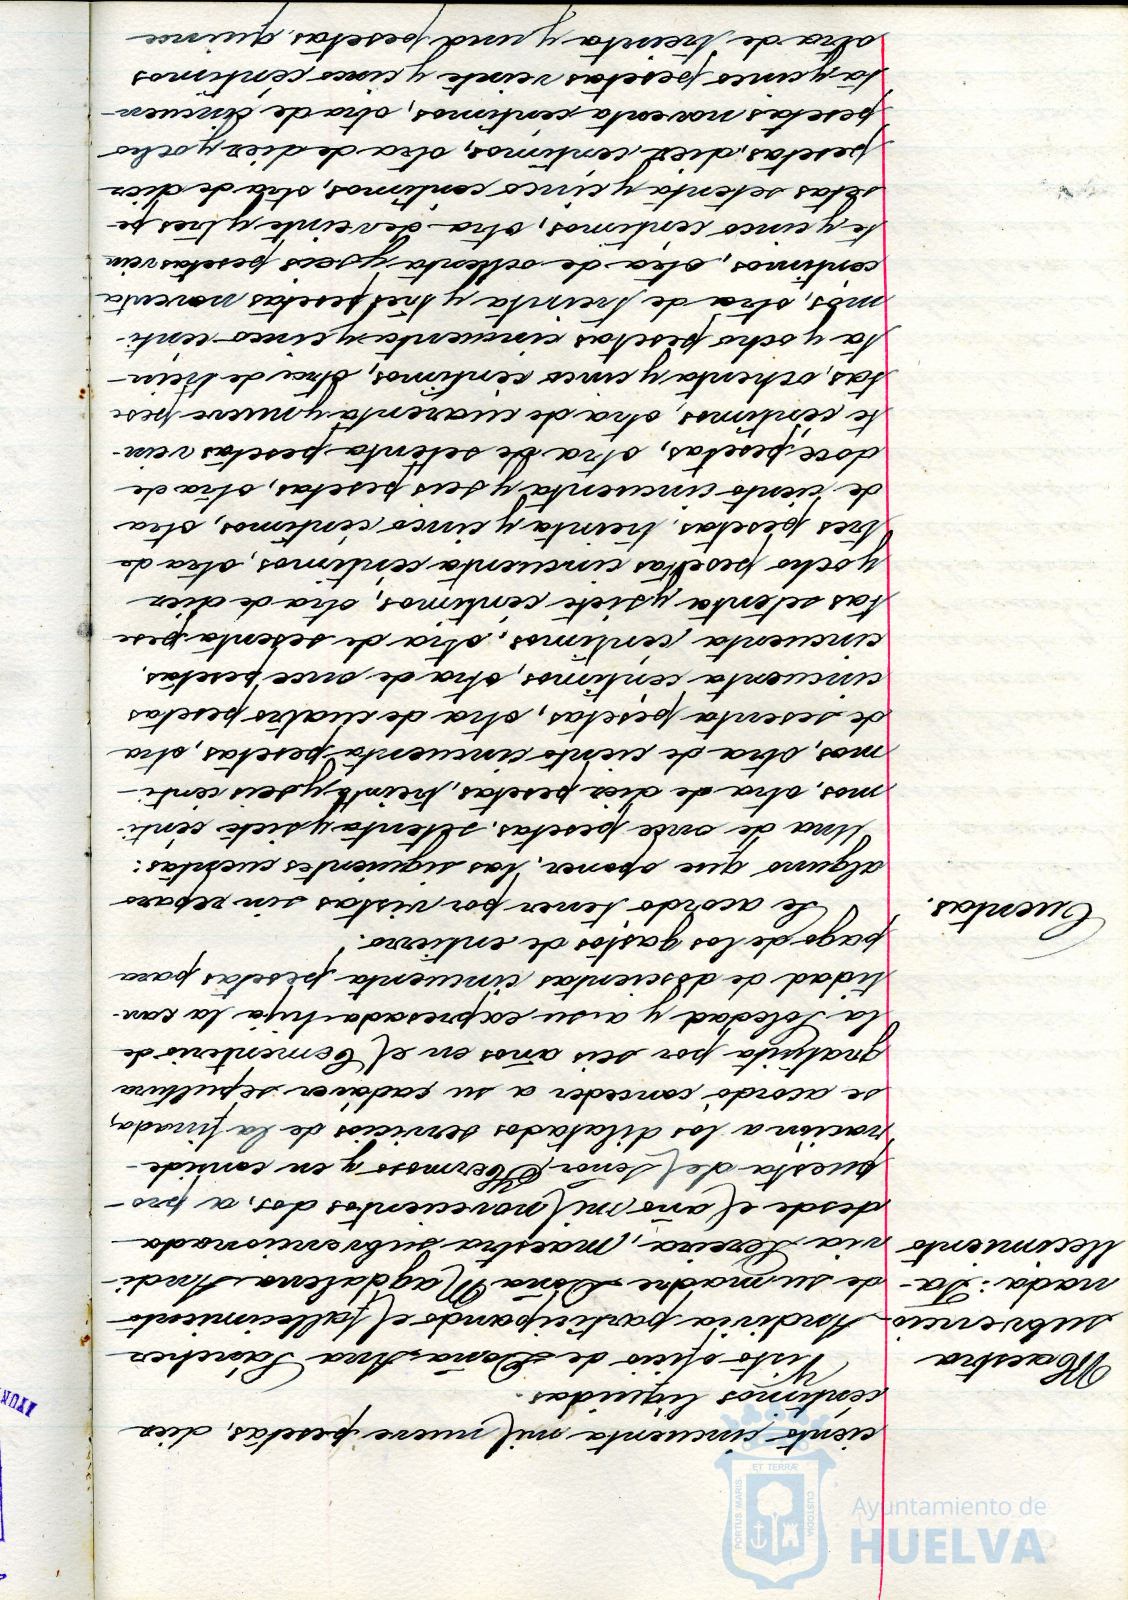 ciento cincuenta mil nueve pesetas, diez
céntimos liquidos.
Maestra
subvencio-
nada: Fa-
llecimiento
Visto oficio de Doña Ana Sanchez
Andivia participando el fallecimiento
de su madre Doña Magdalena Andi-
via Pereira, maestra subvencionada
desde el año mil novecientos dos, a pro-
puesta del Señor Hermoso y en conside-
ración a los dilatados servicios de la finada,
se acordó conceder a su cadáver sepultura
gratuita por seis años en el Cementerio de
la Soledad y a su expresada hija la can-
tidad de doscientas cincuenta pesetas para
pago de los gastos de entierro.
Cuentas.
Se acordo tener por vistas sin reparo
alguno que oponer, las siguientes cuentas:
Una de once pesetas, setenta y siete cénti-
mos, otra de diez pesetas, treinta y seis cénti-
mos, otra de ciento cincuenta pesetas, otra
de sesenta pesetas, otra de cuatro pesetas
cincuenta céntimos, otra de once pesetas,
cincuenta céntimos, otra de sesenta pese
tas setenta y siete céntimos, otra de diez
y ocho pesetas cincuenta céntimos, otra de
tres pesetas, treinta y cinco céntimos, otra
de ciento cincuenta y seis pesetas, otra de
doce pesetas, otra de setenta pesetas vein-
te céntimos, otra de cuarenta y nueve pese
tas, ochenta y cinco céntimos, otra de trein-
ta y ocho pesetas cincuenta y cinco cénti-
mos, otra de treinta y tres pesetas noventa
céntimos, otra de ochenta y seis pesetas vein
te y cinco céntimos, otra de veinte y tres pe-
setas setenta y cinco céntimos, otra de diez
pesetas, diez céntimos, otra de diez y ocho
pesetas noventa céntimos, otra de cincuen-
ta y cinco pesetas veinte y cinco céntimos
otra de treinta y una pesetas quince
ET TERRÆ
PORTUS MARIS
CUSTODIA
Ayuntamiento de
HUELVA